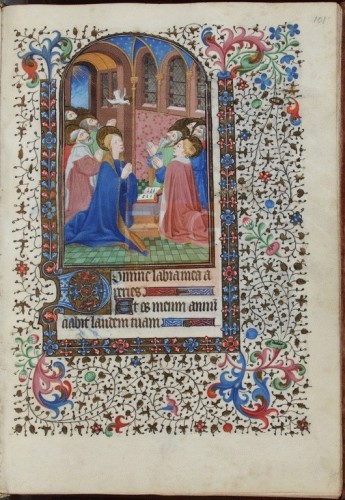 Domine labia mea a
peries
Et os meum annū
ciabit laudem tuam